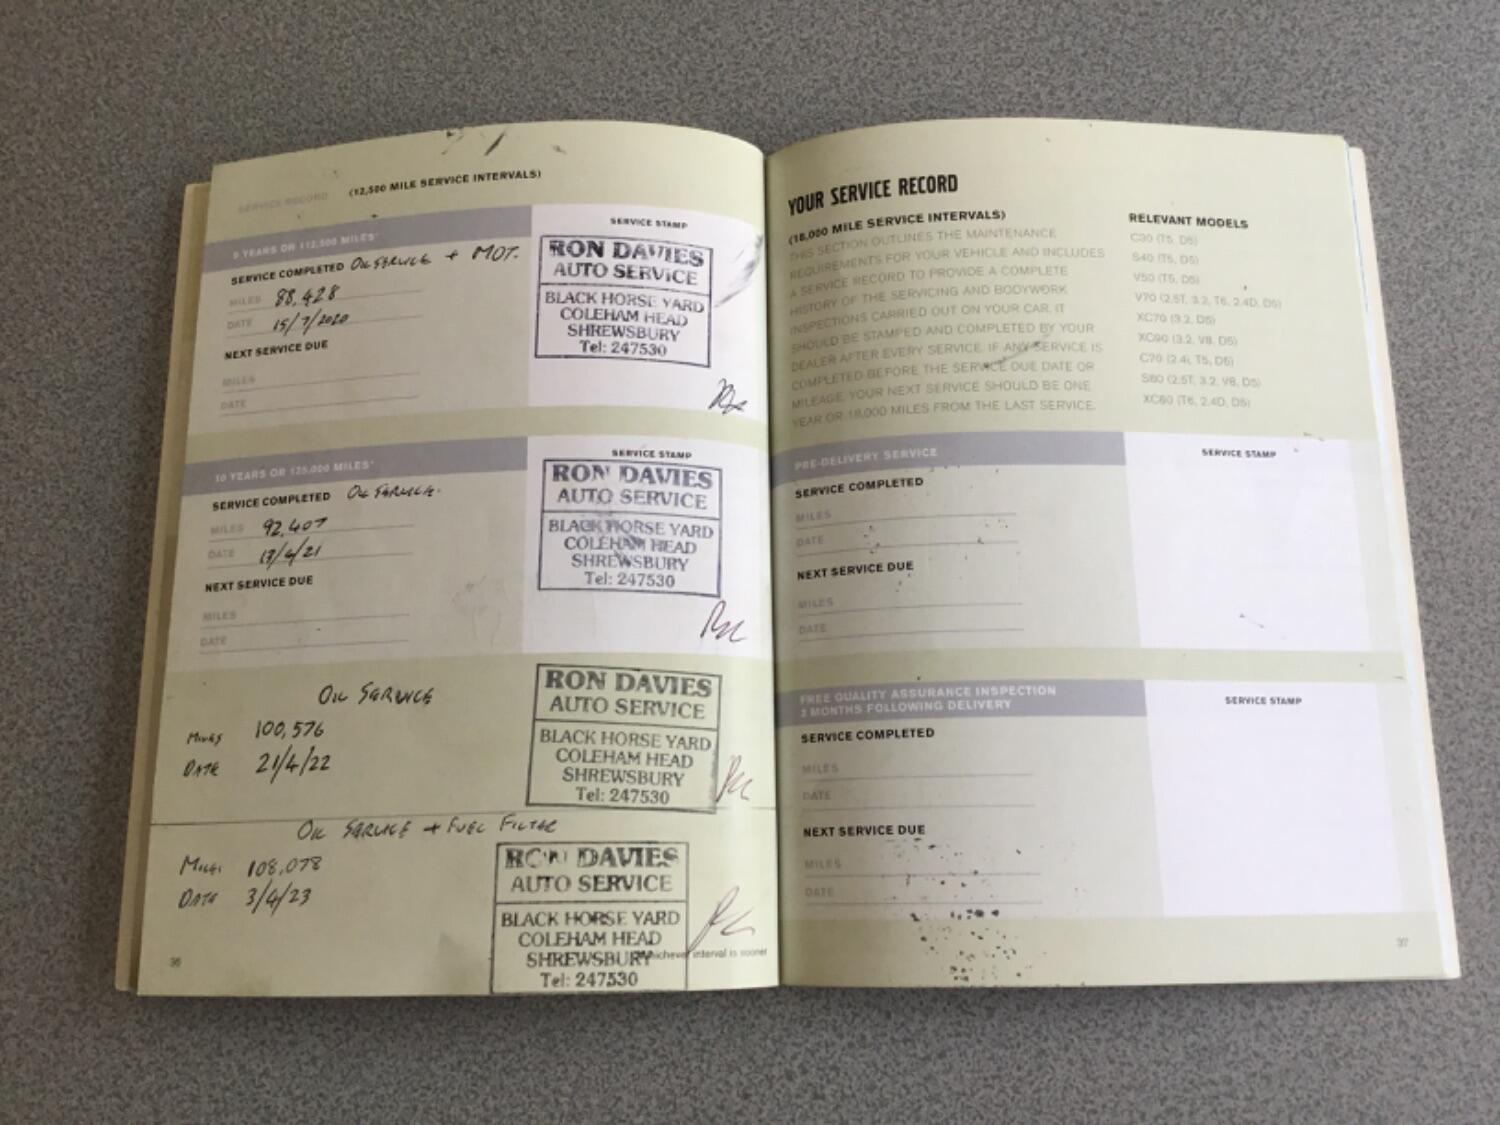 SERVICE RECORD (12,500 MILE SERVICE INTERVALS)
9 YEARS OR 112,500 MILES*
SERVICE COMPLETED OIL SERVICE + MOT.
MILES 88,428
DATE 15/7/2020
NEXT SERVICE DUE
MILES
DATE
SERVICE STAMP
RON DAVIES
AUTO SERVICE
BLACK HORSE YARD
COLEHAM HEAD
SHREWSBURY
Tel: 247530
10 YEARS OR 125,000 MILES*
SERVICE COMPLETED OIL SERVICE.
MILES 92,407
DATE 13/4/21
NEXT SERVICE DUE
MILES
DATE
SERVICE STAMP
RON DAVIES
AUTO SERVICE
BLACK HORSE YARD
COLEHAM HEAD
SHREWSBURY
Tel: 247530
OIL SERVICE
MILES 100,576
DATE 21/4/22
RON DAVIES
AUTO SERVICE
BLACK HORSE YARD
COLEHAM HEAD
SHREWSBURY
Tel: 247530
OIL SERVICE + FUEL FILTER
MILES 108,078
DATE 3/4/23
RON DAVIES
AUTO SERVICE
BLACK HORSE YARD
COLEHAM HEAD
SHREWSBURY
Tel: 247530
*Whichever interval is sooner
36
YOUR SERVICE RECORD
(18,000 MILE SERVICE INTERVALS)
THIS SECTION OUTLINES THE MAINTENANCE
REQUIREMENTS FOR YOUR VEHICLE AND INCLUDES
A SERVICE RECORD TO PROVIDE A COMPLETE
HISTORY OF THE SERVICING AND BODYWORK
INSPECTIONS CARRIED OUT ON YOUR CAR. IT
SHOULD BE STAMPED AND COMPLETED BY YOUR
DEALER AFTER EVERY SERVICE. IF ANY SERVICE IS
COMPLETED BEFORE THE SERVICE DUE DATE OR
MILEAGE, YOUR NEXT SERVICE SHOULD BE ONE
YEAR OR 18,000 MILES FROM THE LAST SERVICE.
RELEVANT MODELS
C30 (T5, D5)
S40 (T5, D5)
V50 (T5, D5)
V70 (2.5T, 3.2, T6, 2.4D, D5)
XC70 (3.2, D5)
XC90 (3.2, V8, D5)
C70 (2.4i, T5, D5)
S80 (2.5T, 3.2, V8, D5)
XC60 (T6, 2.4D, D5)
PRE-DELIVERY SERVICE
SERVICE COMPLETED
MILES
DATE
NEXT SERVICE DUE
MILES
DATE
SERVICE STAMP
FREE QUALITY ASSURANCE INSPECTION
3 MONTHS FOLLOWING DELIVERY
SERVICE COMPLETED
MILES
DATE
NEXT SERVICE DUE
MILES
DATE
SERVICE STAMP
37